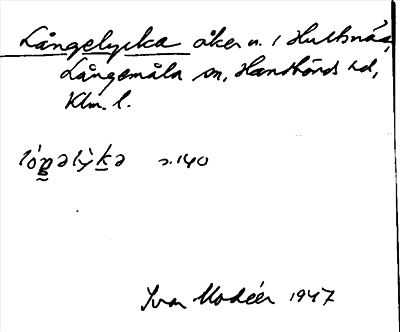 Långelycka åker u. i Hultsnäs,
Långemåla sn, Handbörds hd,
Klm. l.
lóŋəlỳkə s.140
Ivar Modéer 1947